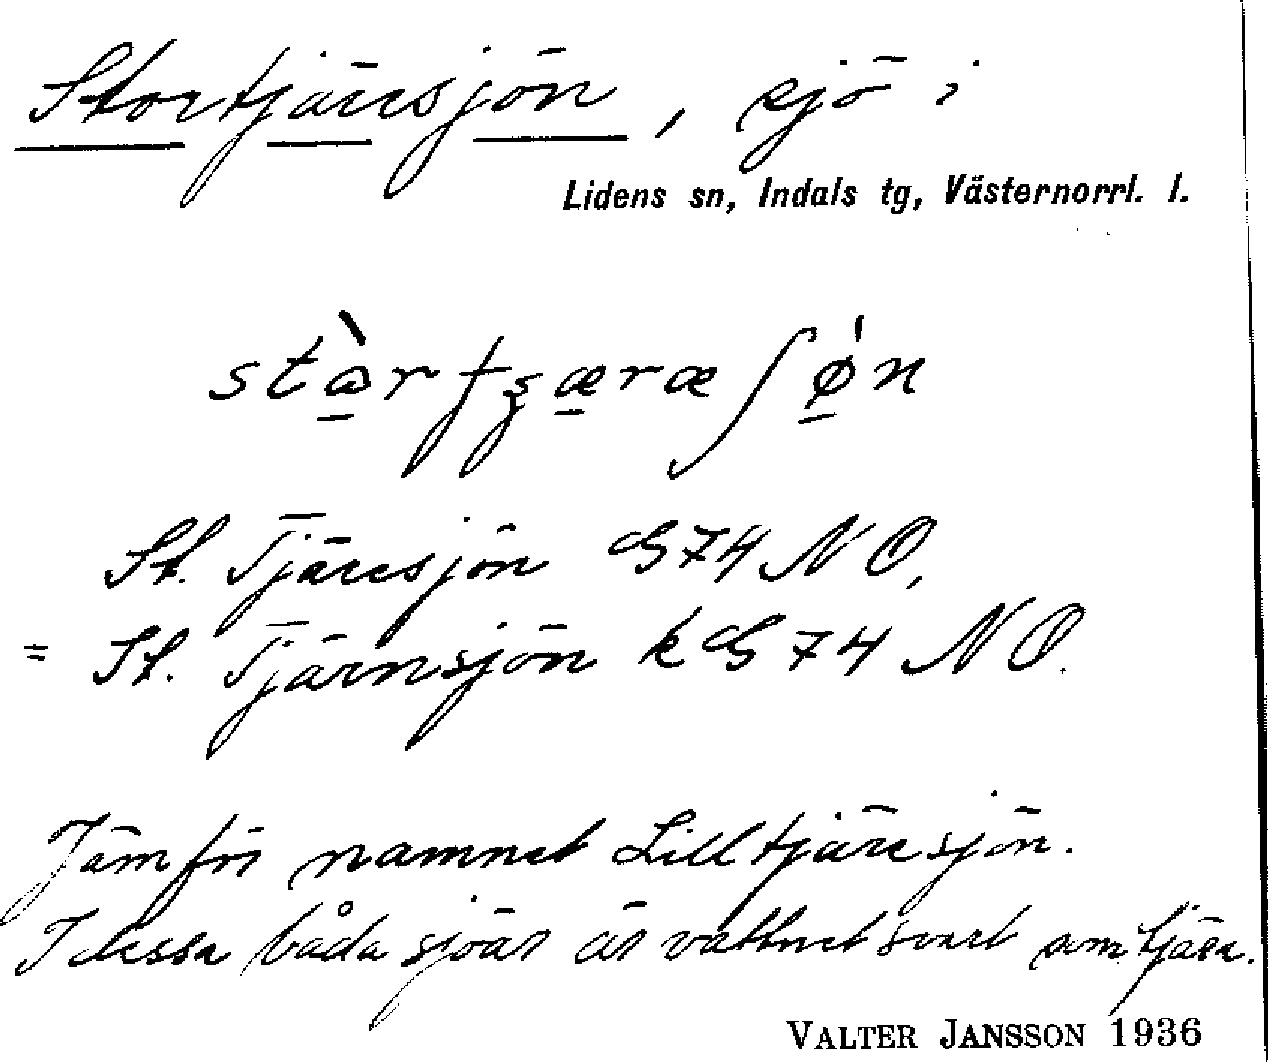 Stortjäresjön, sjö i
Lidens sn, Indals tg, Västernorrl. l.
St. Tjäresjön G 74 NO,
= St. Tjärnsjön k G 74 NO.
Jämför namnet Lilltjäresjön.
I dessa båda sjöar är vattnet svart som tjära.
VALTER JANSSON 1936